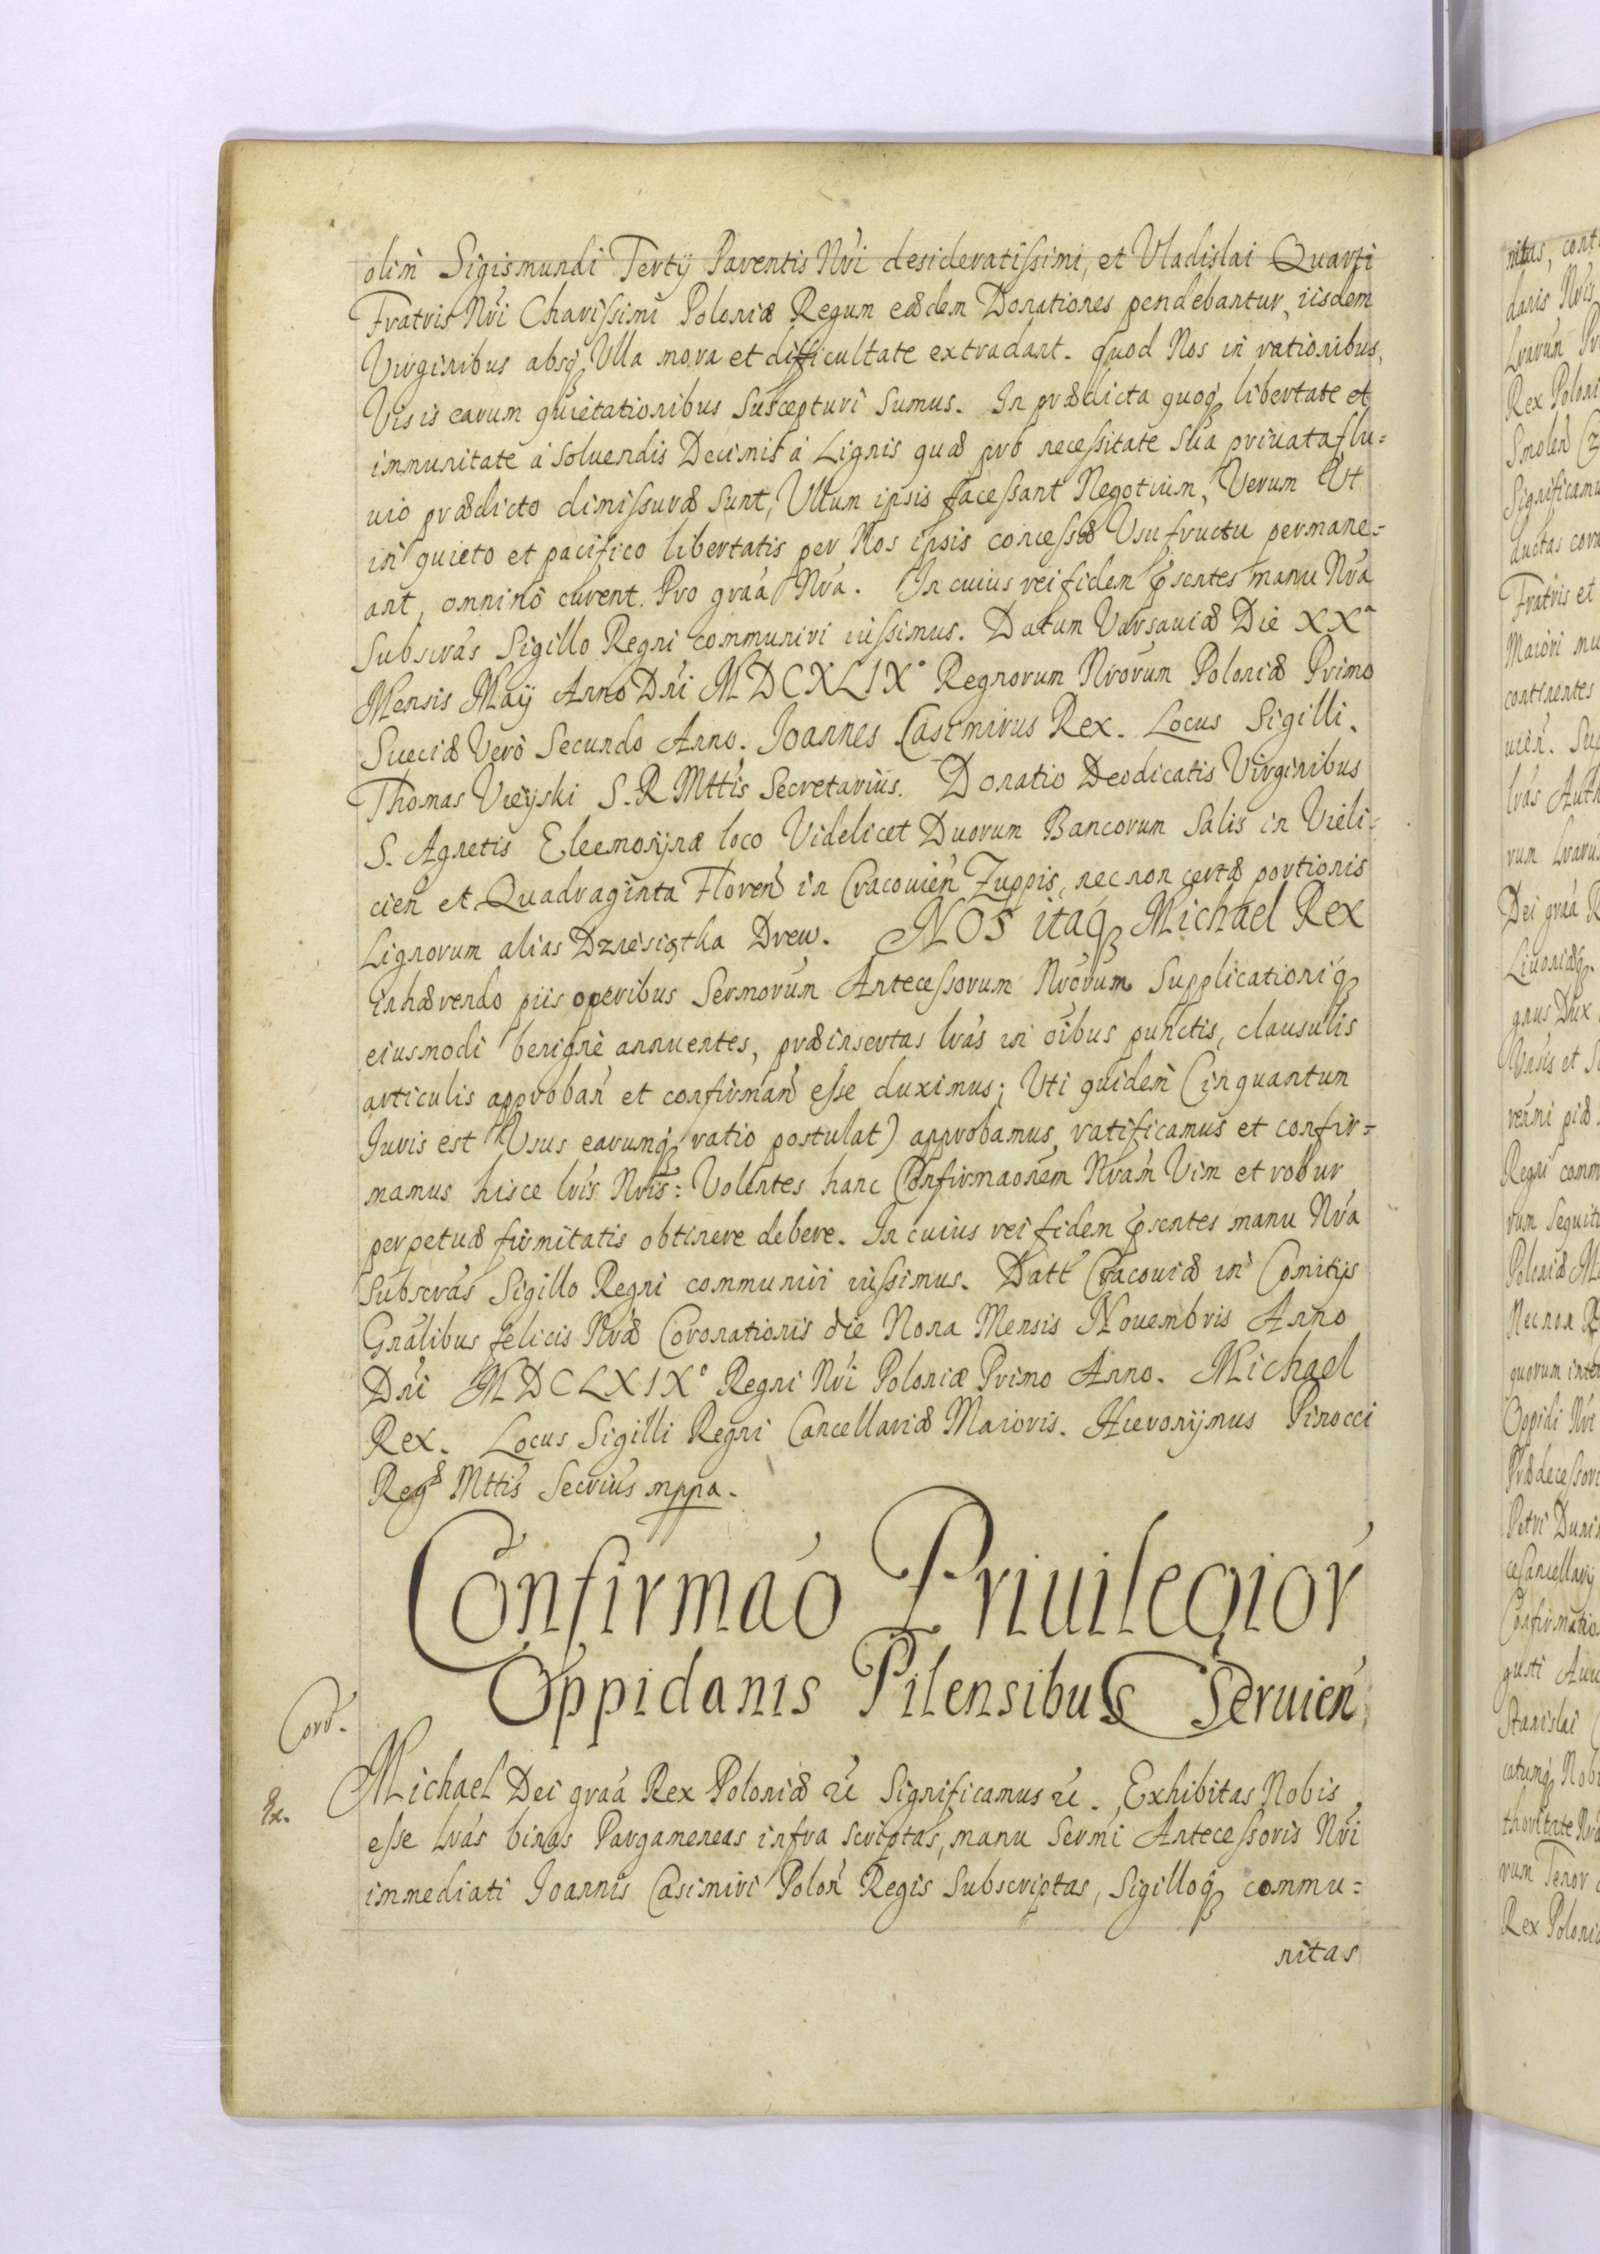 olim Sigismundi Tertÿ Parentis Nři desideratissimi, et Vladislai Quarti
Fratris Nři Charissimi Poloniæ Regum eædem Donationes pendebantur, iisdem
Virginibus absq́ Vlla mora et difficultate extradant. quod Nos in rationibus,
Visis earum quietationibus suscepturi sumus. In prædicta quoq́ libertate et
immunitate à soluendis Decimis à Lignis quæ pro necessitate sua priuata flu=
uio prædicto dimissuræ sunt, Vllum ipsis facessant Negotium, Verum Vt
in quieto et pacifico libertatis per Nos ipsis concessæ Vsufructu permane=
ant, omninò curent. Pro graá Nrá. In cuius rei fidem p̃sentes manu Nrá
Subscrás Sigillo Regni communiri iussimus. Datum Varsauiæ Die XXª
Mensis Maÿ Anno Dńi MDCXLIX° Regnorum Nrórum Poloniæ Primo
Sueciæ Verò Secundo Anno. Joannes Casimirus Rex. Locus Sigilli.
Thomas Vieÿski S. R Mttis Secretarius. Donatio Deodicatis Virginibus
S. Agnetis Eleemosÿnæ loco Videlicet Duorum Bancorum Salis in Vieli=
cień et Quadraginta Floreń in Cracouień Zuppis, nec non certæ portionis
Lignorum alias Dzniesiątka Drew. NOS itaq́ Michael Rex
inhærendo piis operibus Sermorum Antecessorum Nrórum Supplicationiq́
eiusmodi benignè annuentes, præinsertas lrás in oíbus punctis, clausulis
articulis approbań et confirmań esse duximus; Vti quidem (in quantum
Iuris est Vsus earumq́ ratio postulat) approbamus, ratificamus et confir=
mamus hisce lrís Nrís: Volentes hanc Confirmaónem Nrám Vim et robur
perpetuæ firmitatis obtinere debere. In cuius rei fidem p̃sentes manu Nrá
Subscrás Sigillo Regni communiri iussimus. Datt Cracouiæ in Comitÿs
Gnálibus felicis Nræ Coronationis die Nona Mensis Nouembris Anno
Dńi MDCLXIX° Regni Nri Poloniæ Primo Anno. Michael
Rex. Locus Sigilli Regni Cancellariæ Maioris. Hieronÿmus Pinocci
Regæ Mttis Secrius mppa.
Confirmaó Priuilegiór
Oppidanis Pilensibus Seruień
Corr.
Michael Dei graá Rex Poloniæ &c Significamus &c. Exhibitas Nobis
esse lrás binas Pargameneas infra scriptas, manu Sermi Antecessoris Nri
immediati Joannis Casimiri Poloń Regis Subscriptas, Sigilloq́ commu=
nitas